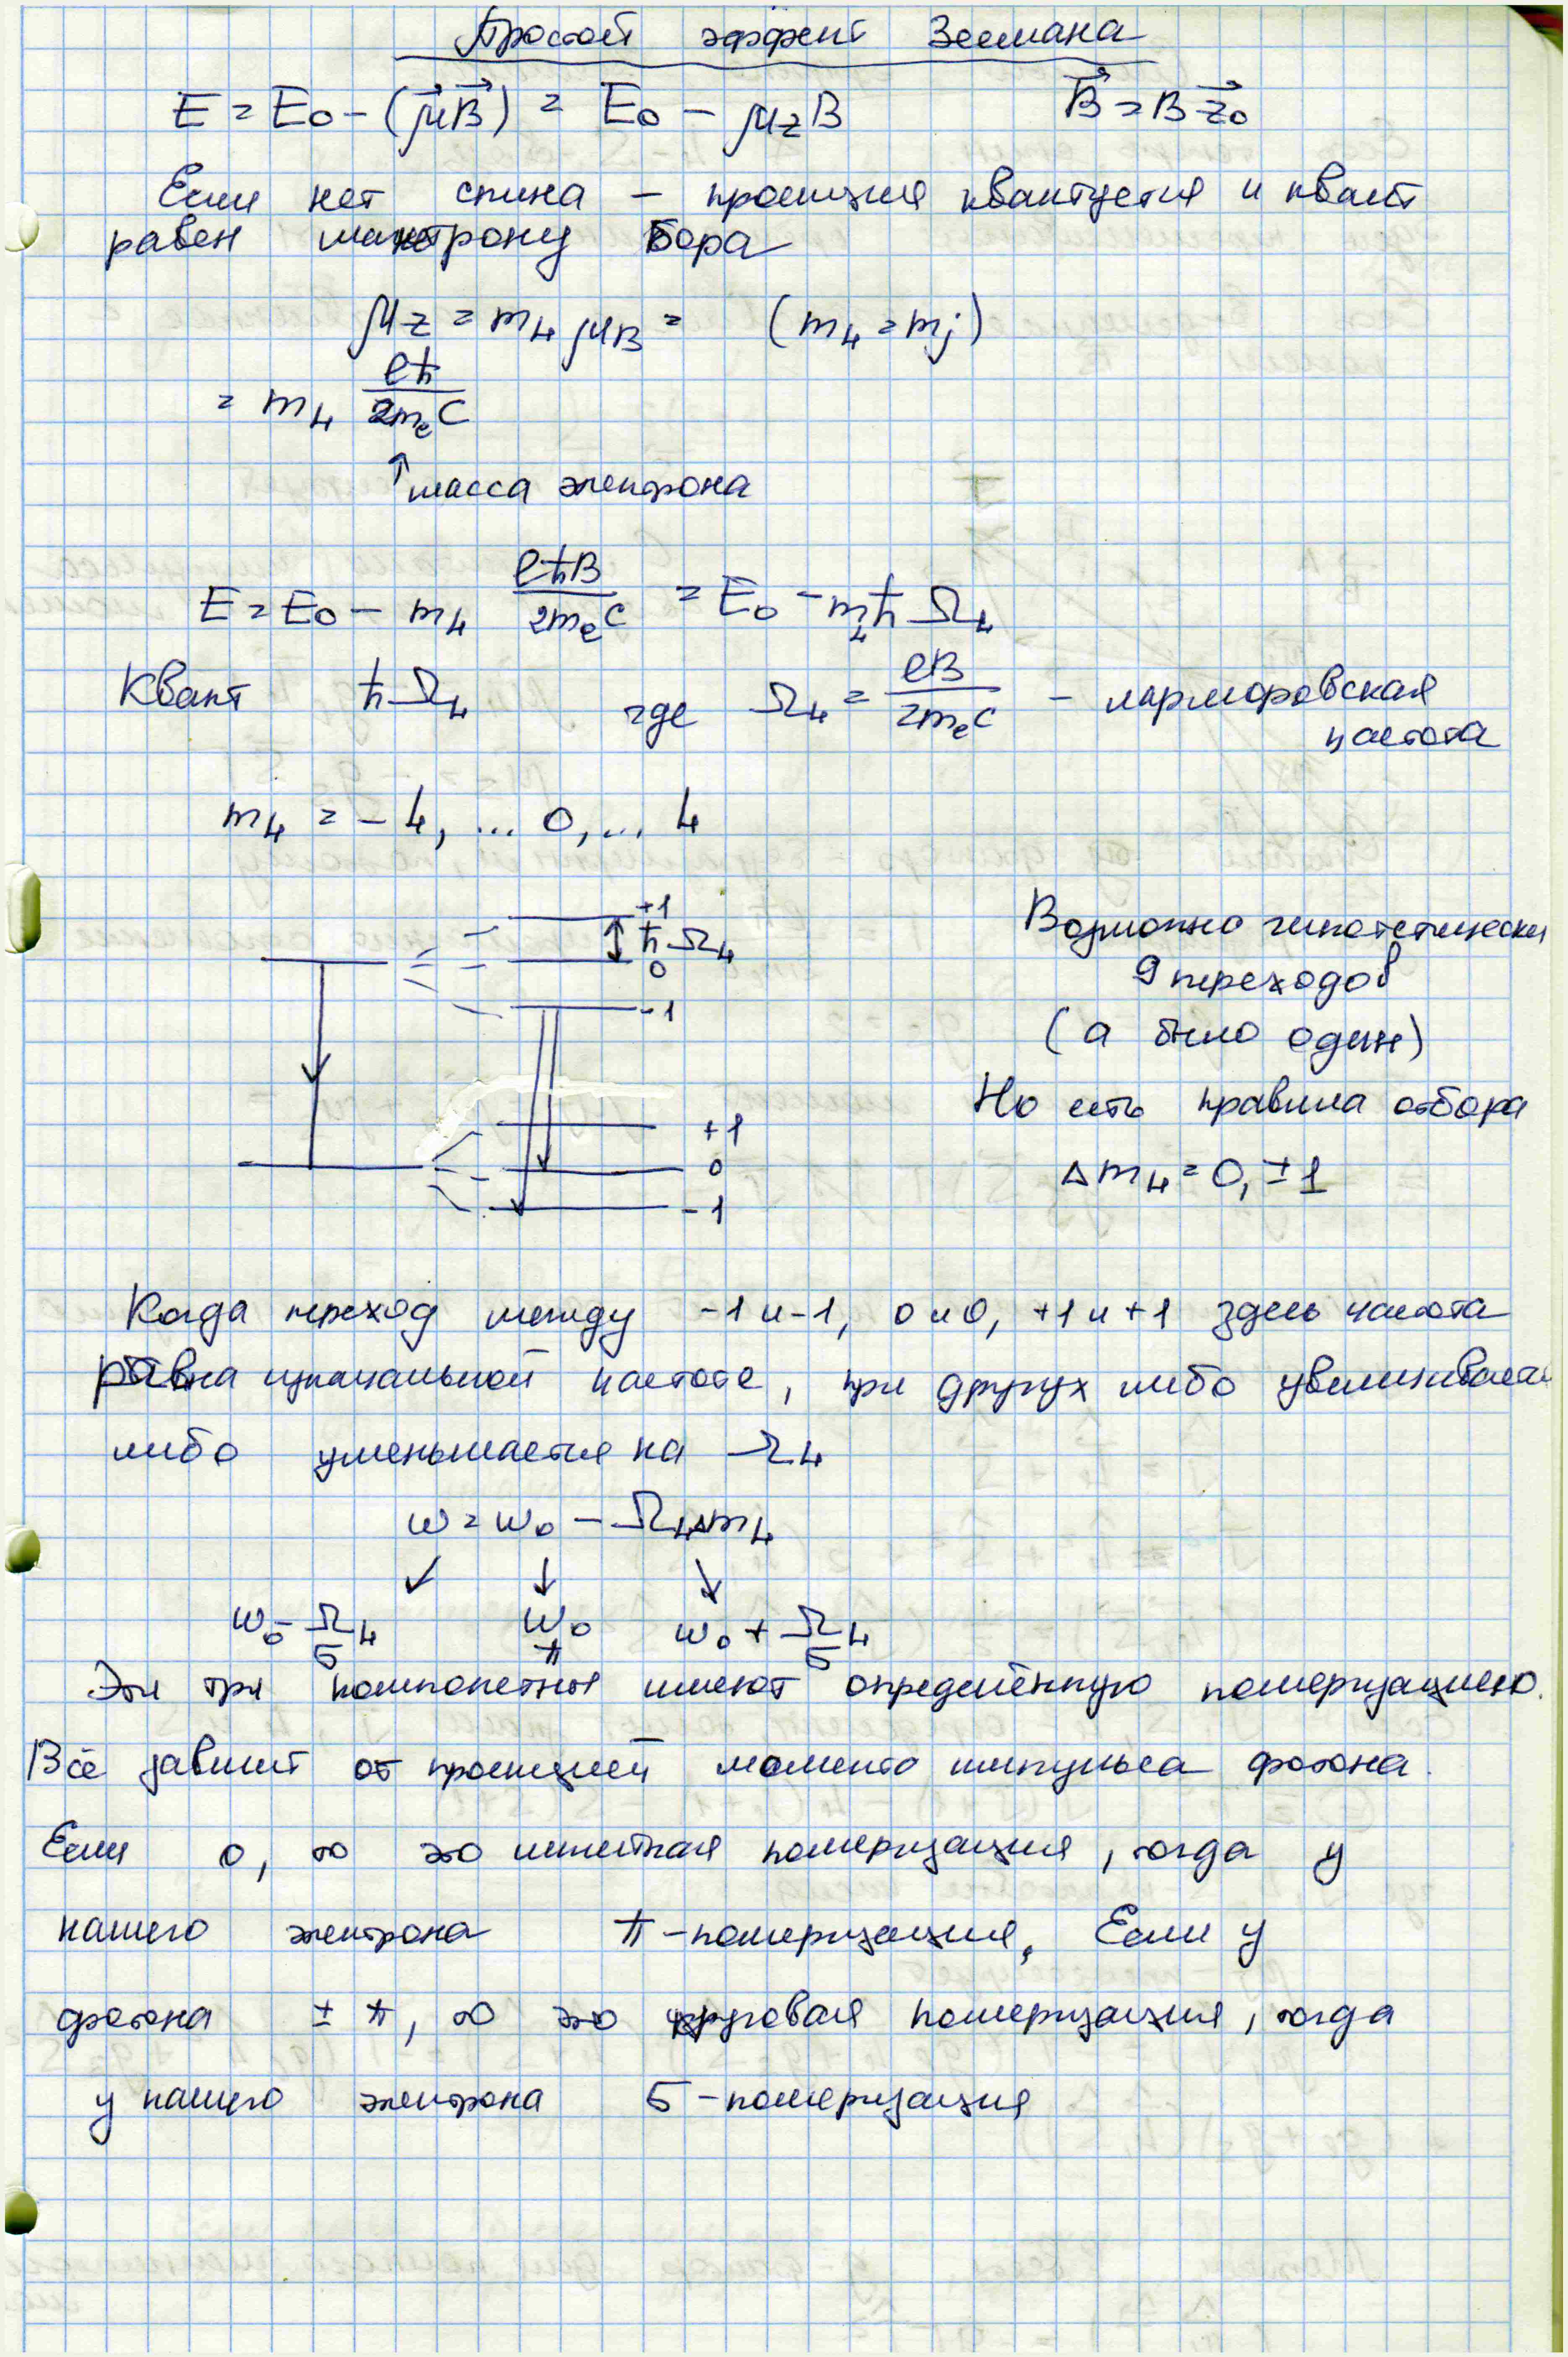 Простой эффект Зеемана
E = E₀ - (μ⃗B⃗) = E₀ - μ_z B    B⃗ = B z⃗₀
Если нет спина – проекция квантуется и квант
равен магнетрону Бора
μ_z = m_L μ_B =    (m_L = m_j)
= m_L eħ/2m_e c
↑ масса электрона
E = E₀ - m_L eħB/2m_e c = E₀ - m_L ħ Ω_L
Квант ħΩ_L где Ω_L = eB/2m_e c – ларморовская
частота
m_L = -L, ... 0, ... L
+1
ħΩ_L
0
-1
+1
0
-1
Возможно гипотетически
9 переходов
(а было один)
Но есть правила отбора
Δm_L = 0, ±1
Когда переход между -1 и -1, 0 и 0, +1 и +1 здесь частота
равна изначальной частоте, при других либо увеличивается
либо уменьшается на Ω_L
ω = ω₀ - Ω_L Δm_L
↙ ↓ ↘
ω₀ - Ω_L    ω₀    ω₀ + Ω_L
σ    π    σ
Эти три компонетны имеют определённую поляризацию.
Всё зависит от проекцией моменто импульса фотона.
Если 0, то это линейная поляризация, тогда у
нашего электрона π-поляризация. Если у
фотона ± ħ, то это круговая поляризация, тогда
у нашего электрона σ-поляризация